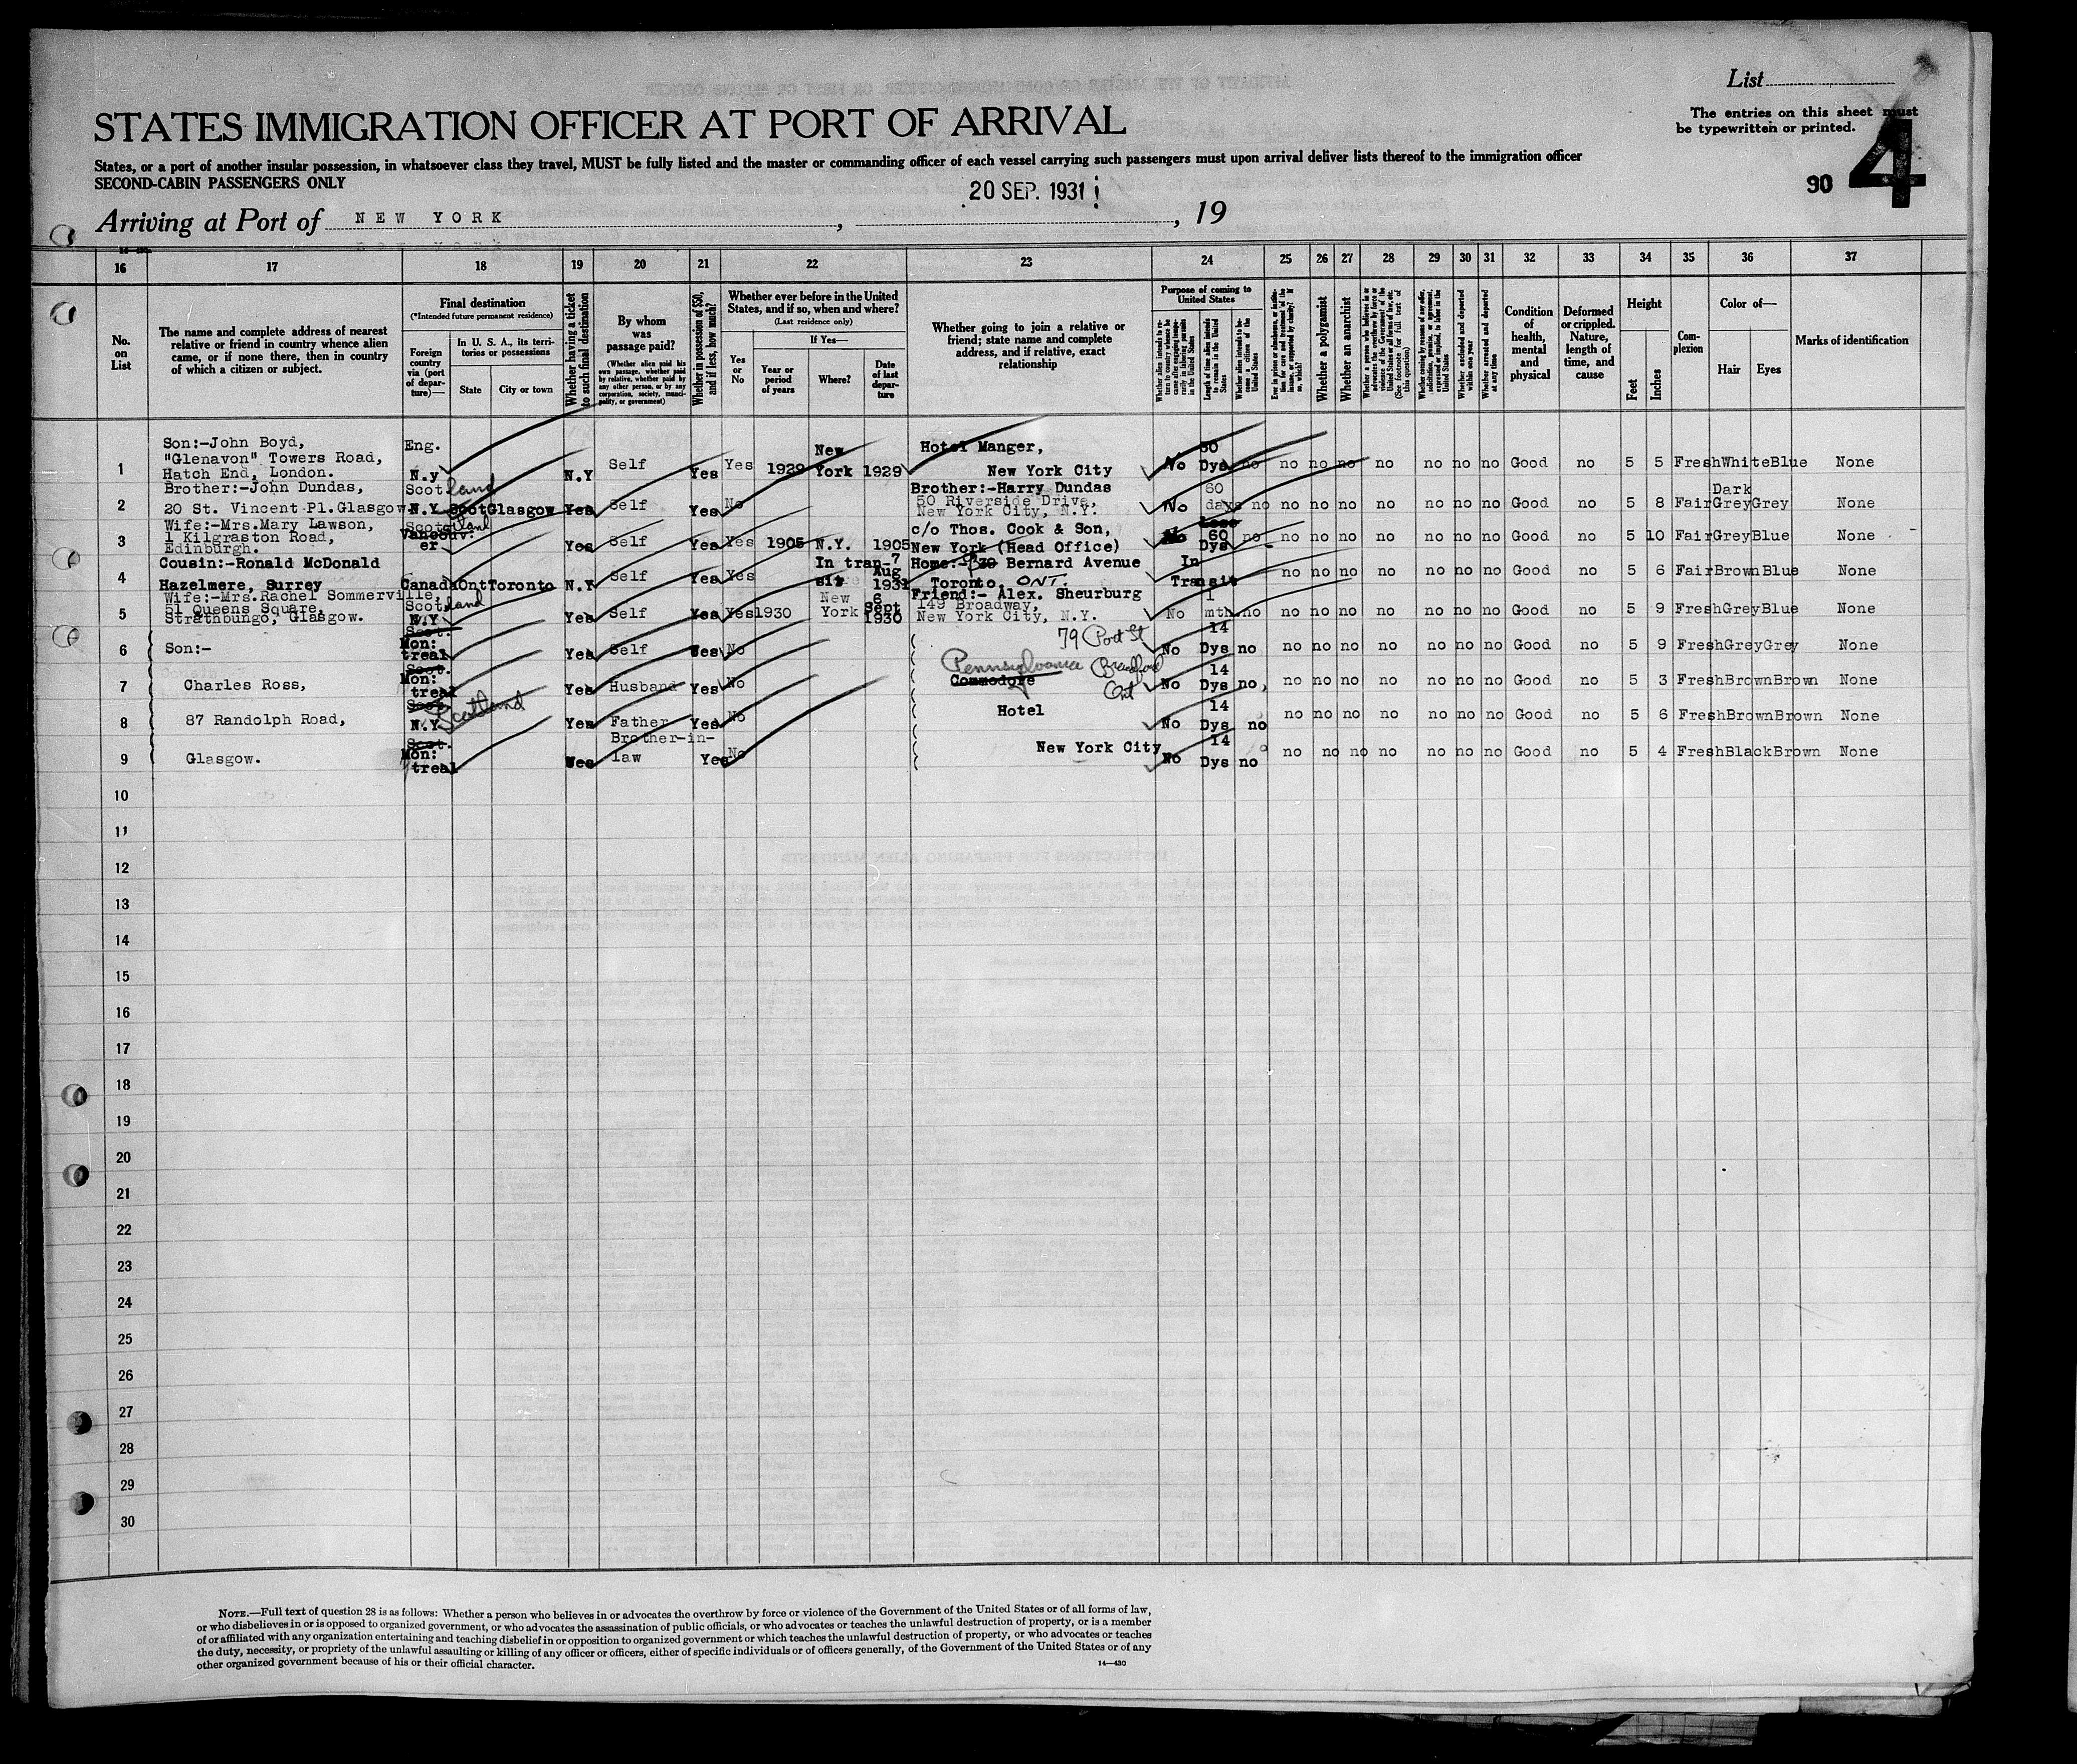 List
The entries on this sheet must
be typewritten or printed.
4
90
STATES IMMIGRATION OFFICER AT PORT OF ARRIVAL
States, or a port of another insular possession, in whatsoever class they travel, MUST be fully listed and the master or commanding officer of each vessel carrying such passengers must upon arrival deliver lists thereof to the immigration officer
SECOND-CABIN PASSENGERS ONLY
20 SEP. 1931
Arriving at Port of NEW YORK , , 19
16 17 18 19 20 21 22 23 24 25 26 27 28 29 30 31 32 33 34 35 36 37
No. on List
The name and complete address of nearest relative or friend in country whence alien came, or if none there, then in country of which a citizen or subject.
Final destination
(*Intended future permanent residence)
Foreign country via (port of departure)—
In U. S. A., its territories or possessions
State
City or town
Whether having a ticket to such final destination
By whom was passage paid?
(Whether alien paid his own passage, whether paid by relative, whether paid by any other person, or by any corporation, society, municipality, or government)
Whether in possession of $50, and if less, how much?
Whether ever before in the United States, and if so, when and where?
(Last residence only)
Yes or No
If Yes—
Year or period of years
Where?
Date of last departure
Whether going to join a relative or friend; state name and complete address, and if relative, exact relationship
Purpose of coming to United States
Length of time alien intends to remain in the United States
Whether alien intends to become a citizen of the United States
Whether a polygamist
Whether an anarchist
Whether excluded and deported within one year
Whether arrested and deported at any time
Condition of health, mental and physical
Deformed or crippled. Nature, length of time, and cause
Height
Feet
Inches
Complexion
Color of—
Hair
Eyes
Marks of identification
1 Son:-John Boyd, "Glenavon" Towers Road, Hatch End, London. Eng. N.y N.Y Self Yes Yes 1929 New York 1929 Hotel Manger, New York City No 60 Dys no no no no no no no no Good no 5 5 Fresh White Blue None
2 Brother:-John Dundas, 20 St. Vincent Pl.Glasgow Scotland N.Y. Scot Glasgow Yes Self Yes No Brother:-Harry Dundas 50 Riverside Drive, New York City, N.Y. No 60 days no no no no no no no no Good no 5 8 Fair Dark Grey Grey None
3 Wife:-Mrs.Mary Lawson, 1 Kilgraston Road, Edinburgh. Scotland Vancouv: er Yes Self Yes Yes 1905 N.Y. 1905 c/o Thos. Cook & Son, New York (Head Office) No 60 Dys no no no no no no no no Good no 5 10 Fair Grey Blue None
4 Cousin:-Ronald McDonald Hazelmere, Surrey Canada Ont Toronto N.Y Self Yes Yes In transit 7 Aug 1931 Home:- Bernard Avenue Toronto, ONT. In Transit no no no no no no no Good no 5 6 Fair Brown Blue None
5 Wife:-Mrs.Rachel Sommerville, 51 Queens Square, Strathbungo, Glasgow. Scotland N.Y Yes Self Yes Yes 1930 New York 6 Sept 1930 Friend:- Alex. Sheurburg 149 Broadway, New York City, N.Y. No 1 mth no no no no no no no no Good no 5 9 Fresh Grey Blue None
6 Son:- Scot. Mon: treal Yes Self Yes No 79 Port St No 14 Dys no no no no no no no no Good no 5 9 Fresh Grey Grey None
7 Charles Ross, Scot. Mon: treal Yes Husband Yes No Pennsylvania Brantford Ont Commodore No 14 Dys no, no no no no no no no Good no 5 3 Fresh Brown Brown None
8 87 Randolph Road, Scot. N.Y. Scotland Yes Father Yes No Hotel No 14 Dys no no no no no no no no Good no 5 6 Fresh Brown Brown None
9 Glasgow. Scot. Mon: treal Yes Brother-in-law Yes No New York City No 14 Dys no no no no no no no no Good no 5 4 Fresh Black Brown None
10
11
12
13
14
15
16
17
18
19
20
21
22
23
24
25
26
27
28
29
30
NOTE.—Full text of question 28 is as follows: Whether a person who believes in or advocates the overthrow by force or violence of the Government of the United States or of all forms of law,
or who disbelieves in or is opposed to organized government, or who advocates the assassination of public officials, or who advocates or teaches the unlawful destruction of property, or is a member
of or affiliated with any organization entertaining and teaching disbelief in or opposition to organized government or which teaches the unlawful destruction of property, or who advocates or teaches
the duty, necessity, or propriety of the unlawful assaulting or killing of any officer or officers, either of specific individuals or of officers generally, of the Government of the United States or of any
other organized government because of his or their official character.
14—430